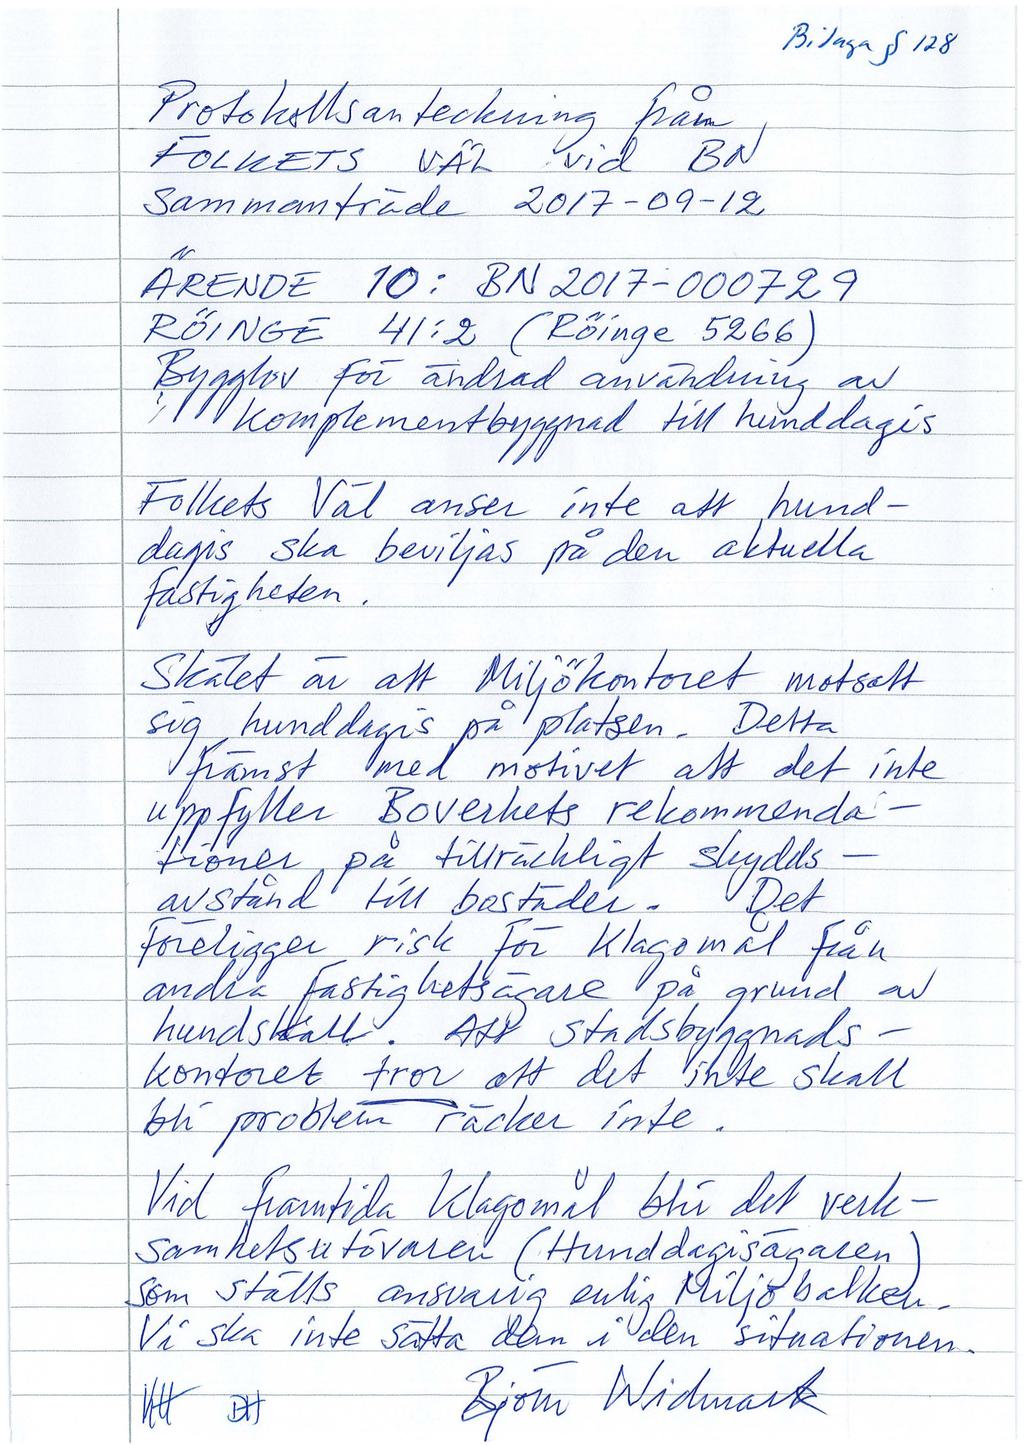 Bilaga § 128
Protokollsanteckning från
FOLKETS VÄL vid BN
Sammanträde 2017-09-12
ÄRENDE 10: BN 2017-000729
RÖINGE 41:2 (Röinge 5266)
Bygglov för ändrad användning av
komplementbyggnad till hunddagis
Folkets Väl anser inte att hund-
dagis ska beviljas på den aktuella
fastigheten.
Skälet är att Miljökontoret motsatt
sig hunddagis på platsen. Detta
främst med motivet att det inte
uppfyller Boverkets rekommenda-
tioner på tillräckligt skydds-
avstånd till bostäder. Det
föreligger risk för klagomål från
andra fastighetsägare på grund av
hundskall. Att stadsbyggnads-
kontoret tror att det inte skall
bli problem räcker inte.
Vid framtida klagomål blir det verk-
samhetsutövaren (Hunddagisägaren)
som ställs ansvarig enlig Miljöbalken.
Vi ska inte sätta dem i den situationen.
Björn Widmark